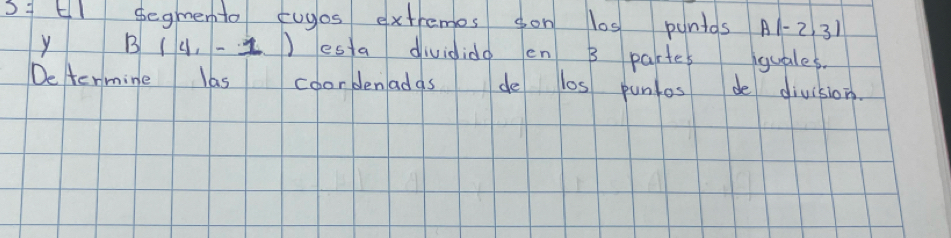 3= El segmento cuyos extremos son los puntos A(-2,3)
y B (4,-1) esta dividido en 3 partes iguales.
Determine las coordenadas de los puntos de division.